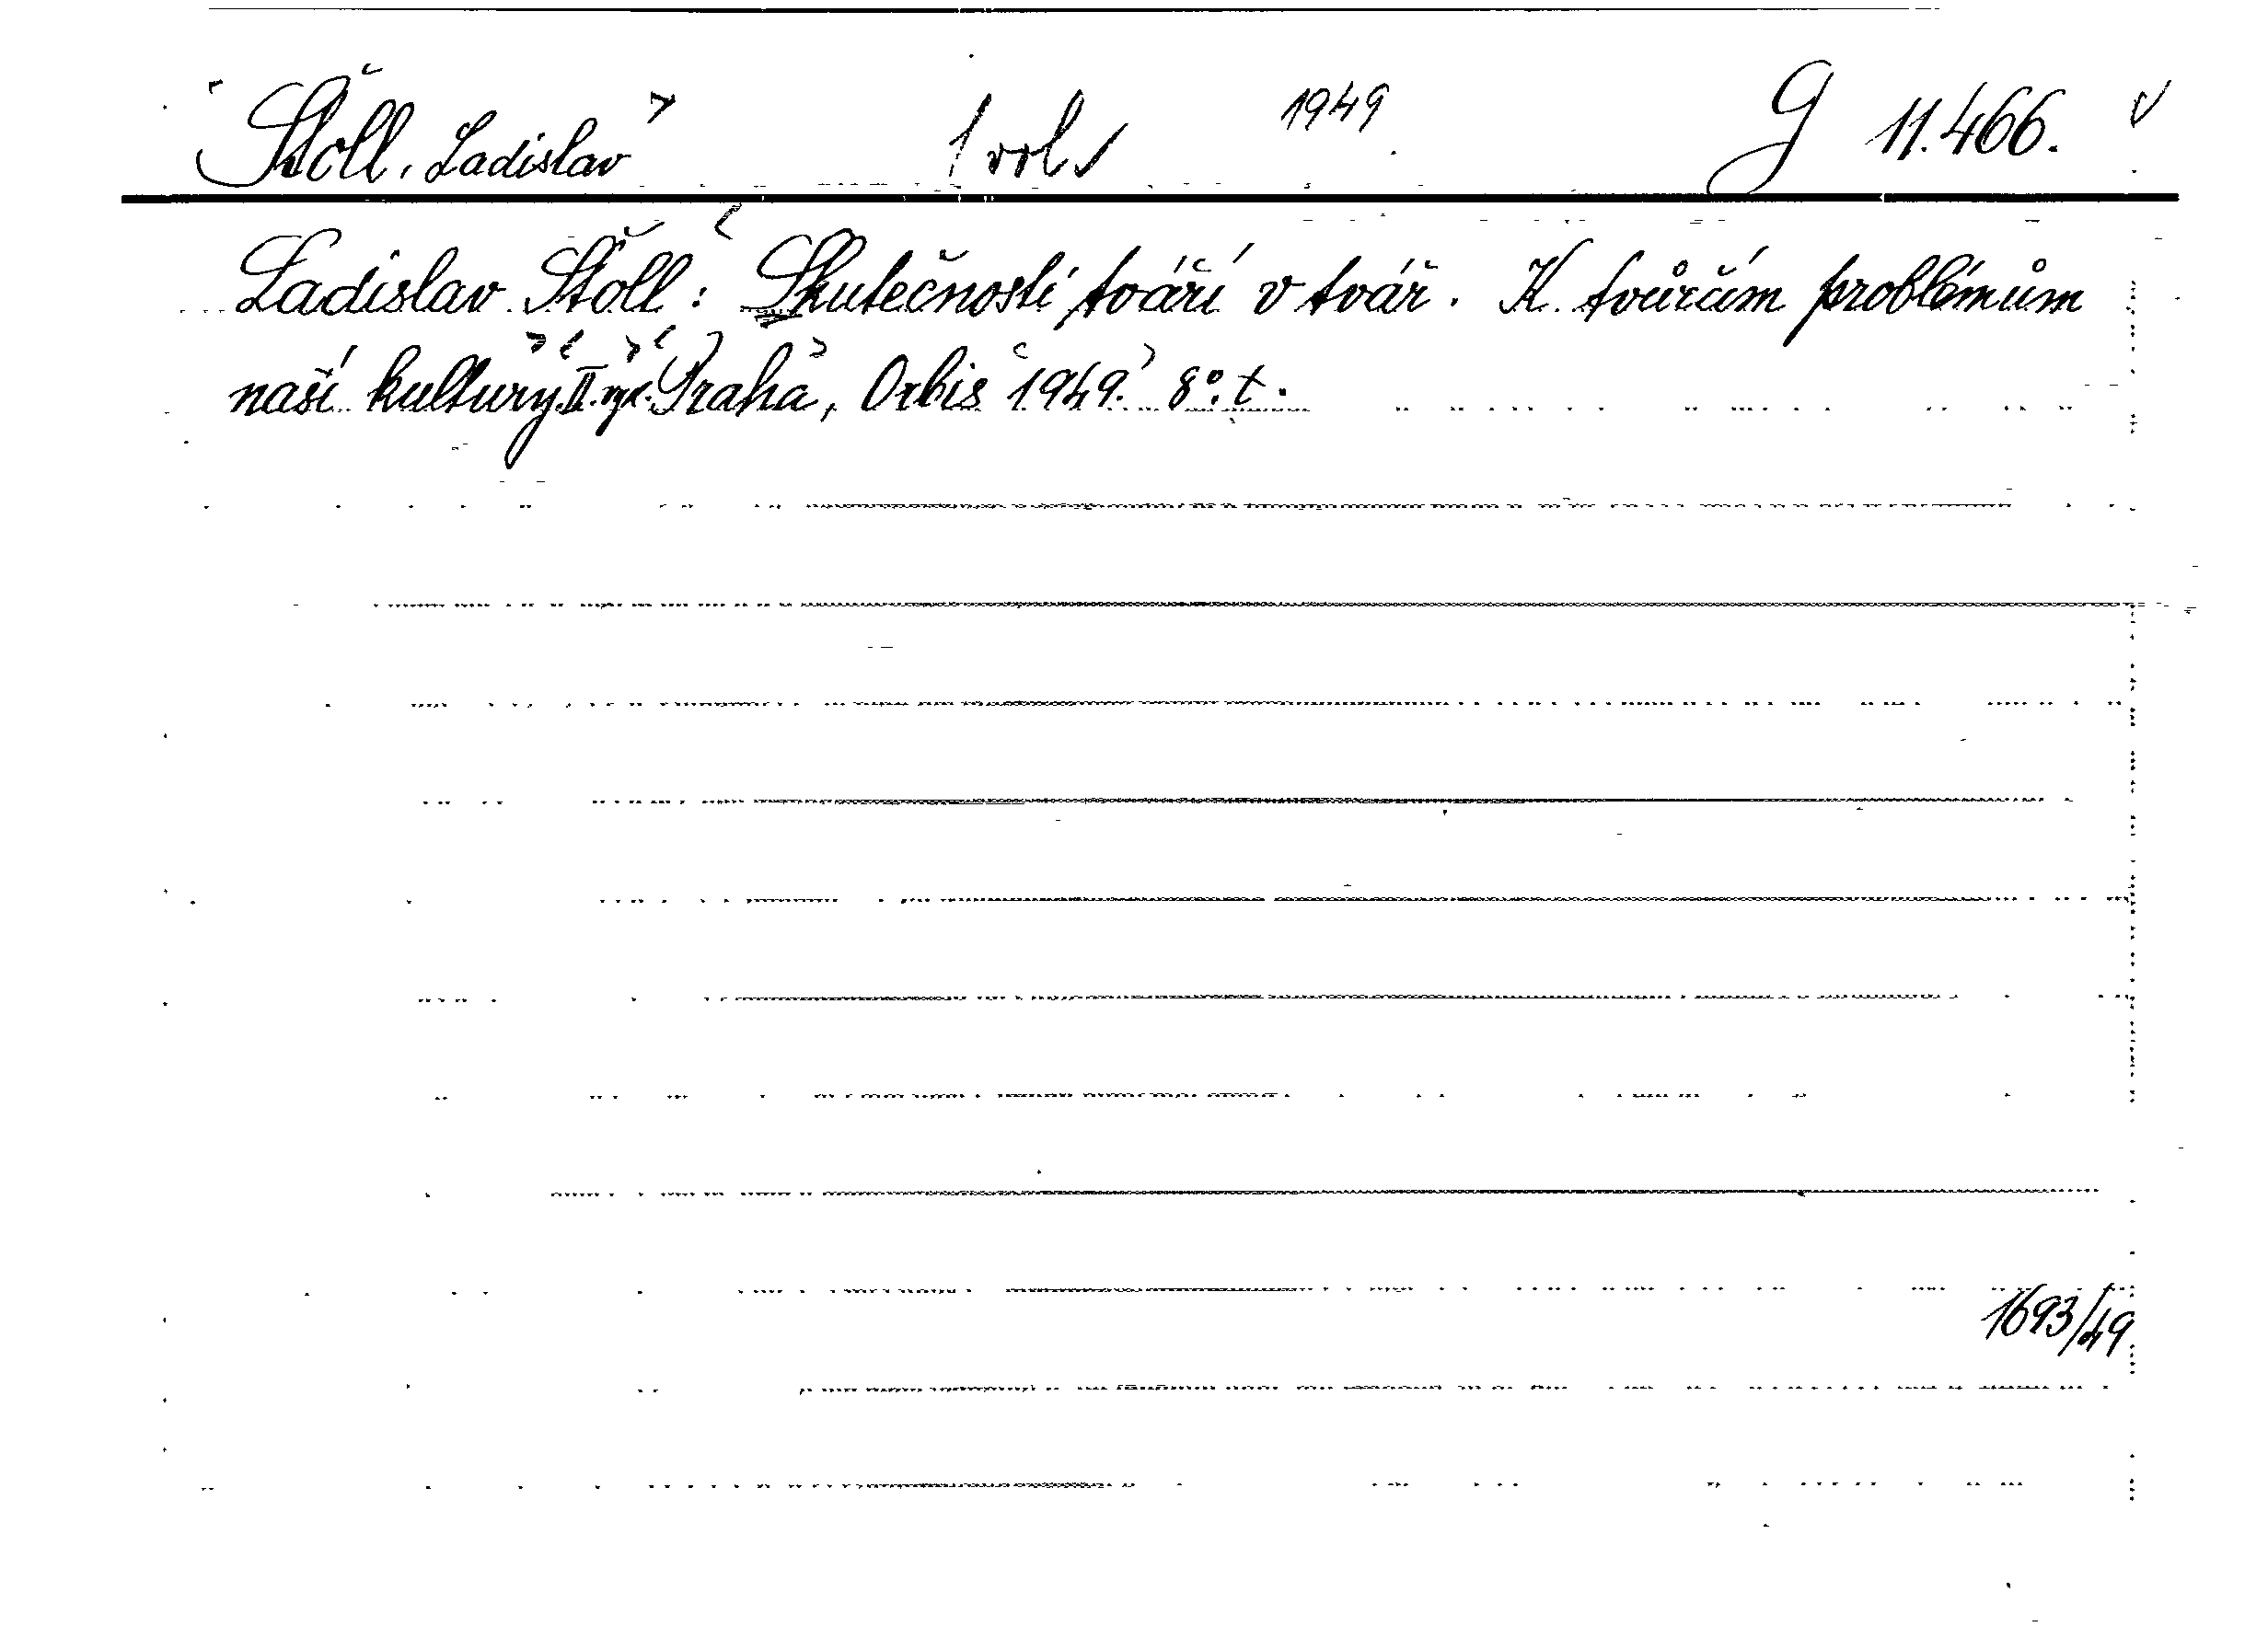 Štoll, Ladislav 1 vol. 1949 G 11.466.
Ladislav Štoll: Skutečnosti tváří v tvář. K tvůrčím problémům
naší kultury. II. vyd. Praha, Orbis 1949. 8°. t.
1693/49